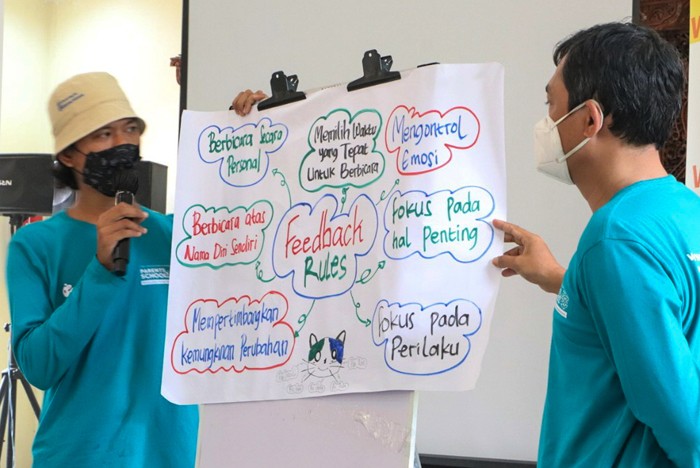 Berbicara Secara
Personal
Memilih Waktu
yang Tepat
Untuk Berbicara
Mengontrol
Emosi
Berbicara atas
Nama Diri Sendiri
Feedback
Rules
Fokus pada
hal Penting
Mempertimbangkan
kemungkinan Perubahan
Fokus pada
Perilaku